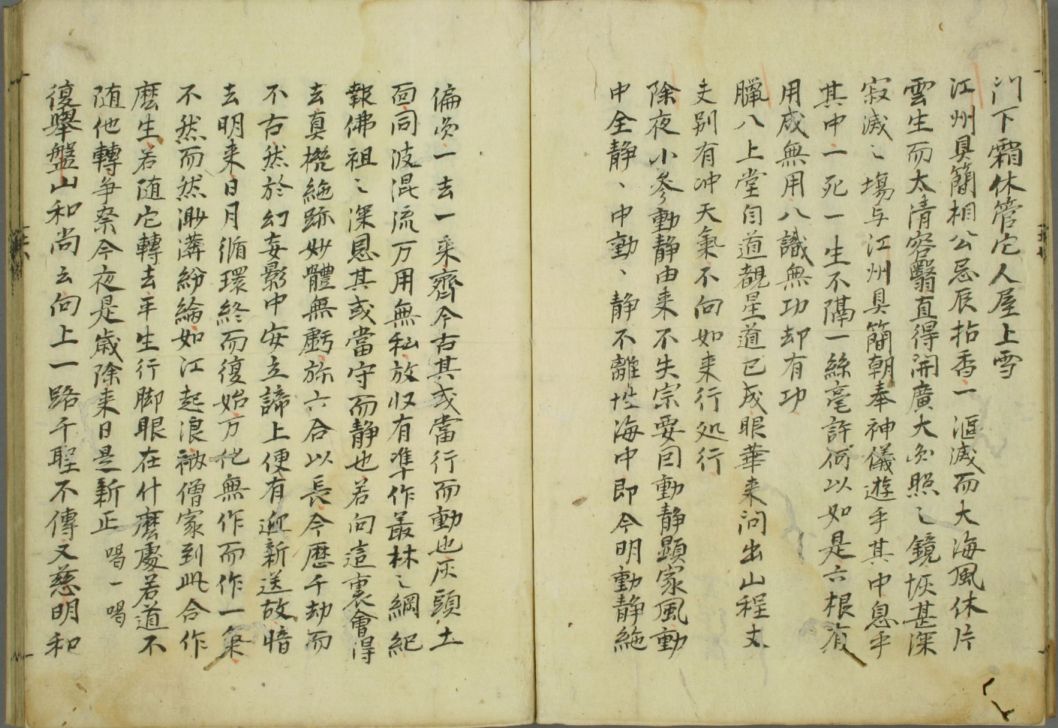 門下霜休管它人屋上雪
江州具簡相公忌辰拈香一漚滅而大海風休片
雲生而太清容翳直得開廣大圓照之鏡恢甚深
寂滅之場与江州具簡朝奉神儀遊乎其中息乎
其中一死一生不隔一絲毫許何以如是六根有
用成無用八識無功却有功
臘八上堂自道覩星道已成眼華来問出山程丈
夫别有冲天氣不向如来行処行
除夜小参動静由来不失宗要因動静顕家風動
中全静、中動、静不離性海中即今明動静絶
偏圓一去一来齊今古其或當行而動也灰頭土
面同波混流万用無私放収有準作叢林之綱紀
報佛祖之深恩其或當守而静也若向這裏會得
去真機絶跡妙體無虧旅六合以長今歴千劫而
不古然於幻妄影中安立諦上便有迎新送故暗
去明来日月循環終而復始方化無作而作一氣
不然而然渺溝紛綸如江起浪衲僧家到此合作
麽生若随它轉去平生行脚眼在什麽處若道不
随他轉争奈今夜是歳除来日是新正 喝一喝
復舉盤山和尚云向上一路千聖不傳又慈明和